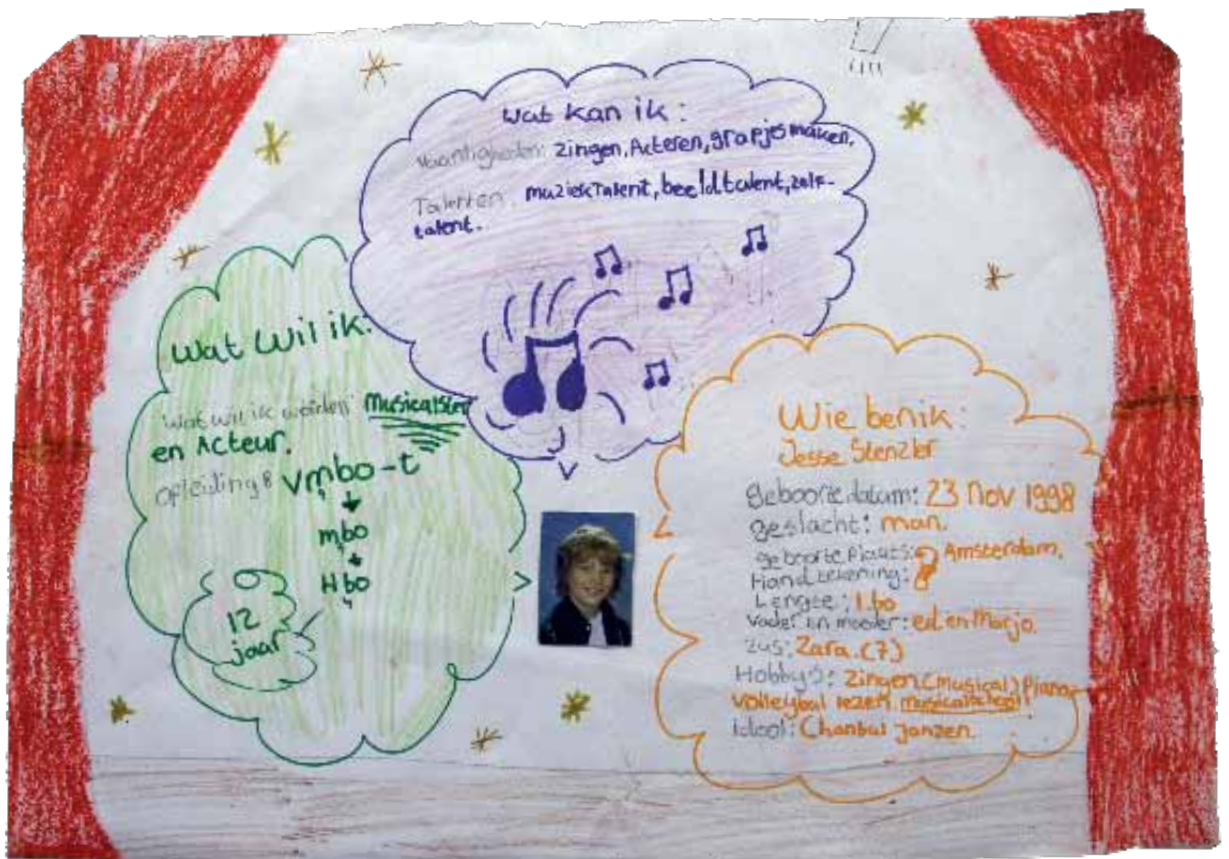 Wat kan ik:
Vaardigheden: zingen, Acteren, grapjes maken.
Talenten: muziekTalent, beeldtalent, zelf-
talent.
Wat wil ik:
Wat wil ik worden: Musicalster
en Acteur.
opleiding: Vmbo-t
mbo
Hbo
12
jaar
Wie ben ik:
Jesse Stenzler
geboorte datum: 23 Nov 1998
geslacht: man.
geboorte Plaats: Amsterdam.
Handtekening:
Lengte: 1.60
Vader en moeder: ed en Marjo.
zus: Zara. (7)
Hobby's: zingen (musical) Piano
volleybal lezen musicalschool
idool: Chantal Janzen.